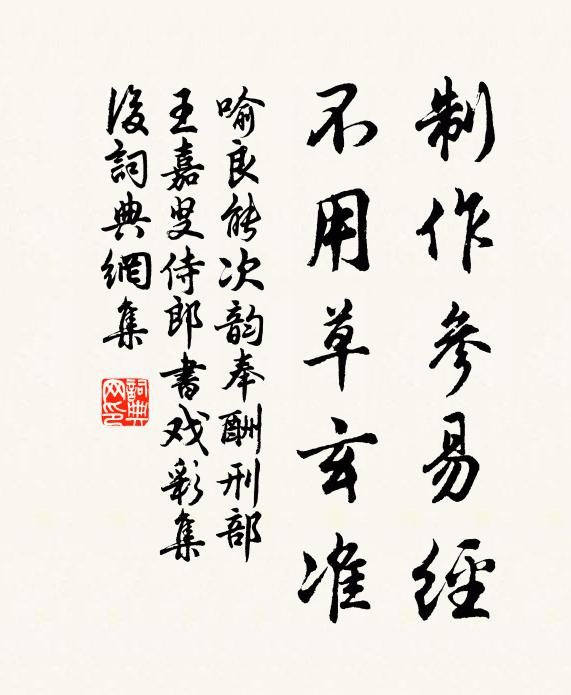 制作參易經
不用草玄准
喻良能次韵奉酬刑部
王嘉叟侍郎書戏彩集
後詞典網集
詞典网印